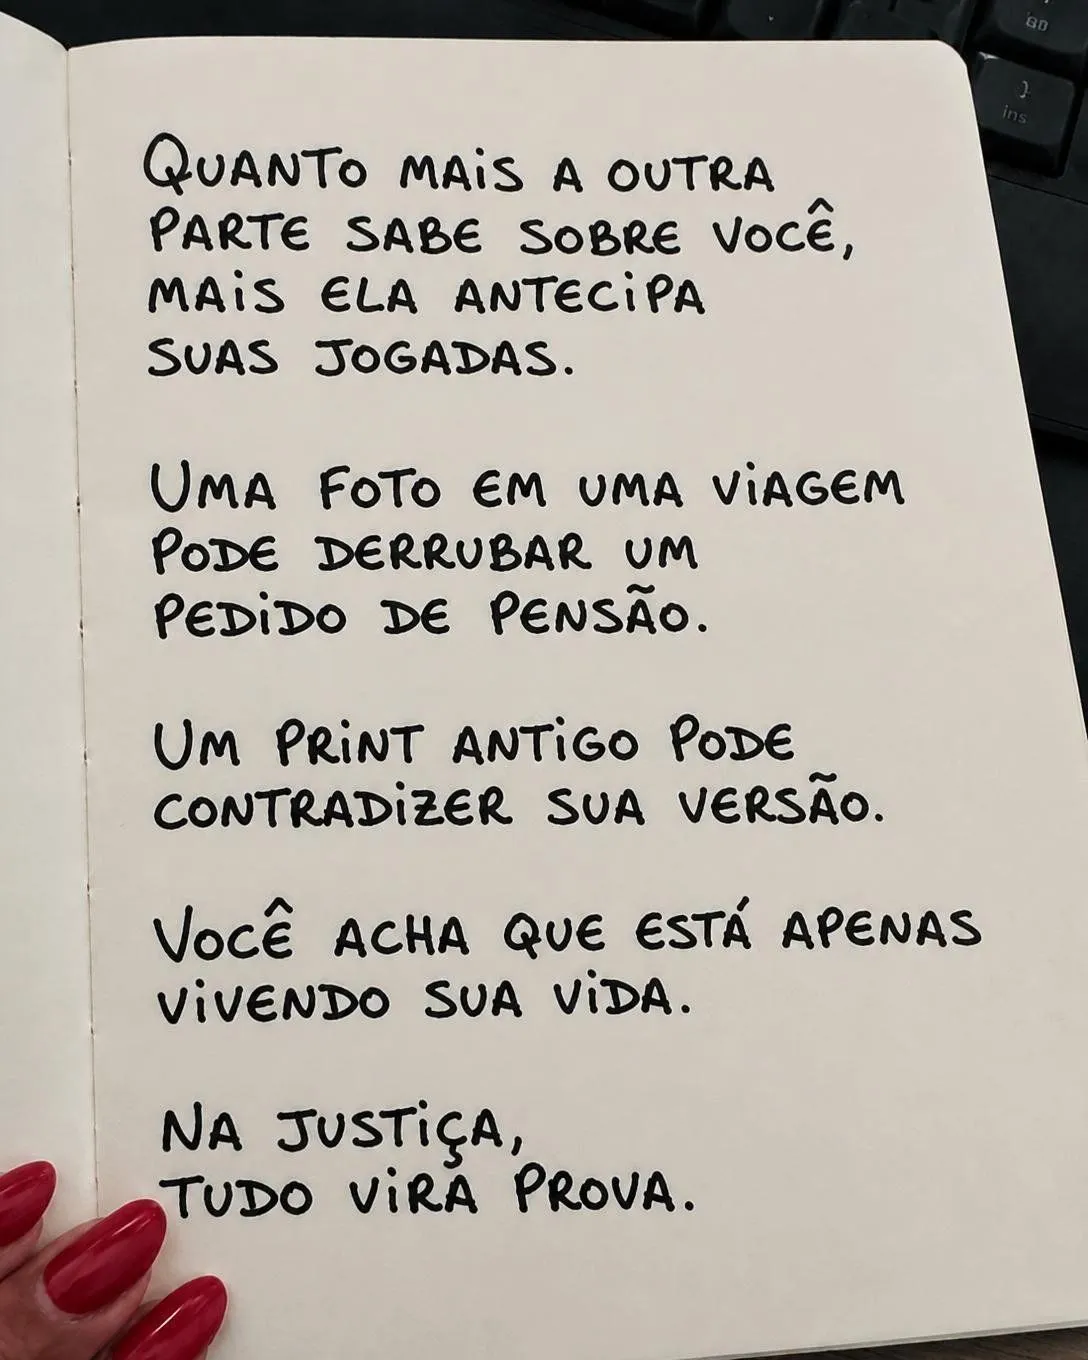 QUANTO MAIS A OUTRA
PARTE SABE SOBRE VOCÊ,
MAIS ELA ANTECIPA
SUAS JOGADAS.
UMA FOTO EM UMA VIAGEM
PODE DERRUBAR UM
PEDIDO DE PENSÃO.
UM PRINT ANTIGO PODE
CONTRADIZER SUA VERSÃO.
VOCÊ ACHA QUE ESTÁ APENAS
VIVENDO SUA VIDA.
NA JUSTIÇA,
TUDO VIRA PROVA.
ins